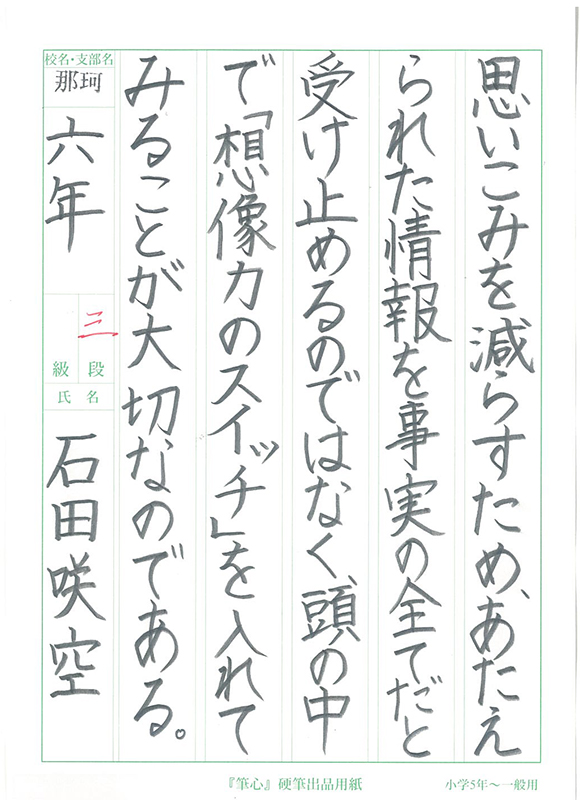 思いこみを減らすため、あたえ
られた情報を事実の全てだと
受け止めるのではなく、頭の中
で「想像力のスイッチ」を入れて
みることが大切なのである。
校名・支部名
那珂
六年
三
級 段
氏名
石田咲空
『筆心』硬筆出品用紙
小学5年〜一般用